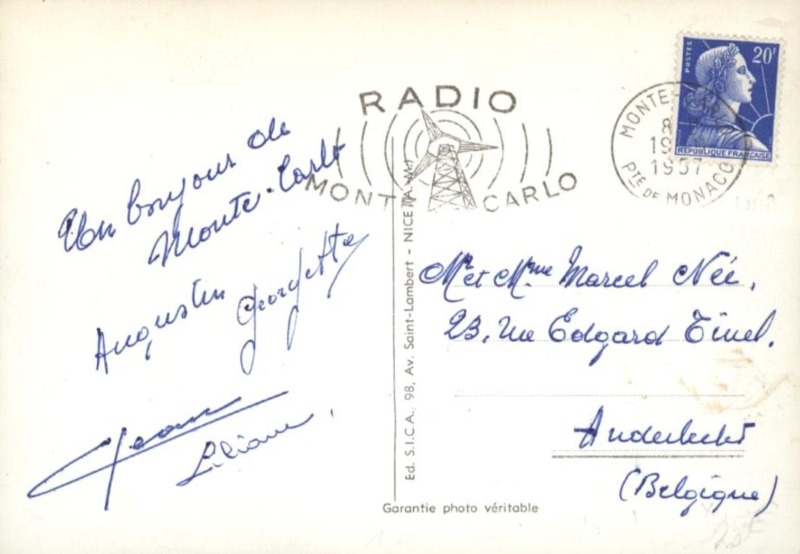 RADIO
MONTE CARLO
POSTES
20f
REPUBLIQUE FRANÇAISE
MONTE-
8
19
1957
PTE DE MONACO
Un bonjour de
Monte-Carlo
Augustin
Georgette
Jean
Liliane,
Ed. S.I.C.A., 98, Av. Saint-Lambert - NICE (A.-M.)
Mr et Mme Marcel Née,
23, rue Edgard Tinel.
Anderlecht
(Belgique)
Garantie photo véritable